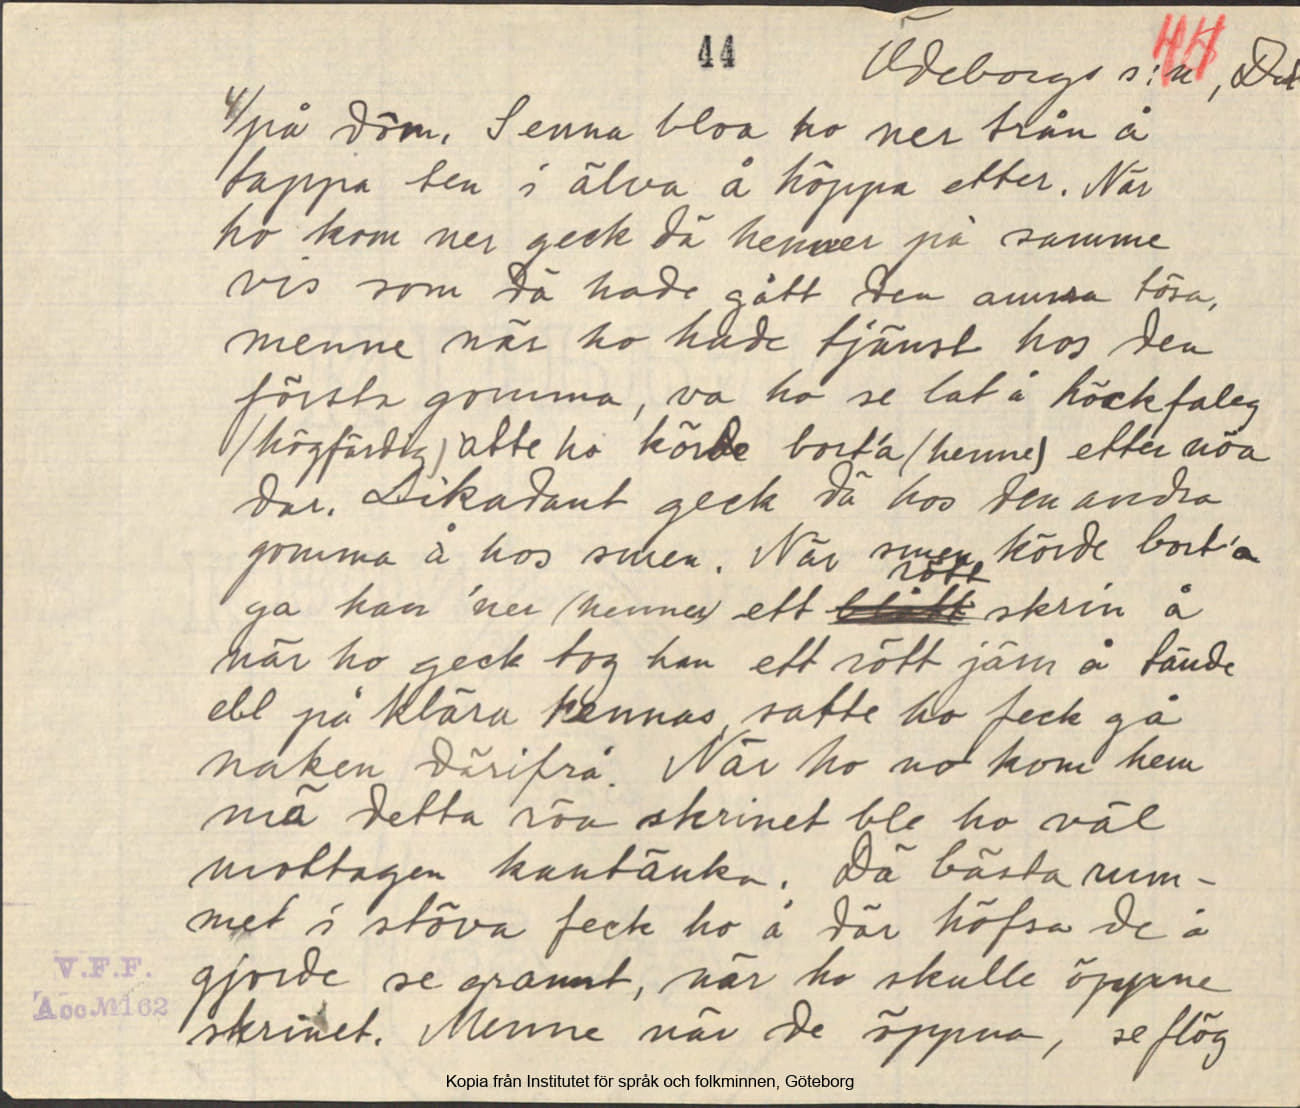 44
44
Ödeborgs s:n, Dal
4/ på döm. Senna bloa ho ner trån å
tappa ten i älva å höppa etter. När
ho kom ner geck dä henner på samme
vis som dä hade gått den anna tösa,
menne när ho hade tjänst hos den
första gomma, va ho se lat å höckfaleg
(högfärdig) atte ho körde bort'a (henne) etter nöa
dar. Likadant geck dä hos den andra
gomma å hos smen. När smen körde bort'a
ga han 'ner (henner) ett rött skrin å
när ho geck tog han ett rött järn å tände
ell på klära hennas, satte ho feck gå
naken därifrå. När ho no kom hem
mä detta röa skrinet ble ho väl
mottagen kantänka. Dä bästa rum-
met i stöva feck ho å där höfsa de å
gjorde se grannt, när ho skulle öppne
skrinet. Menne när de öppna, se flög
V.F.F.
Acc.№162
Kopia från Institutet för språk och folkminnen, Göteborg